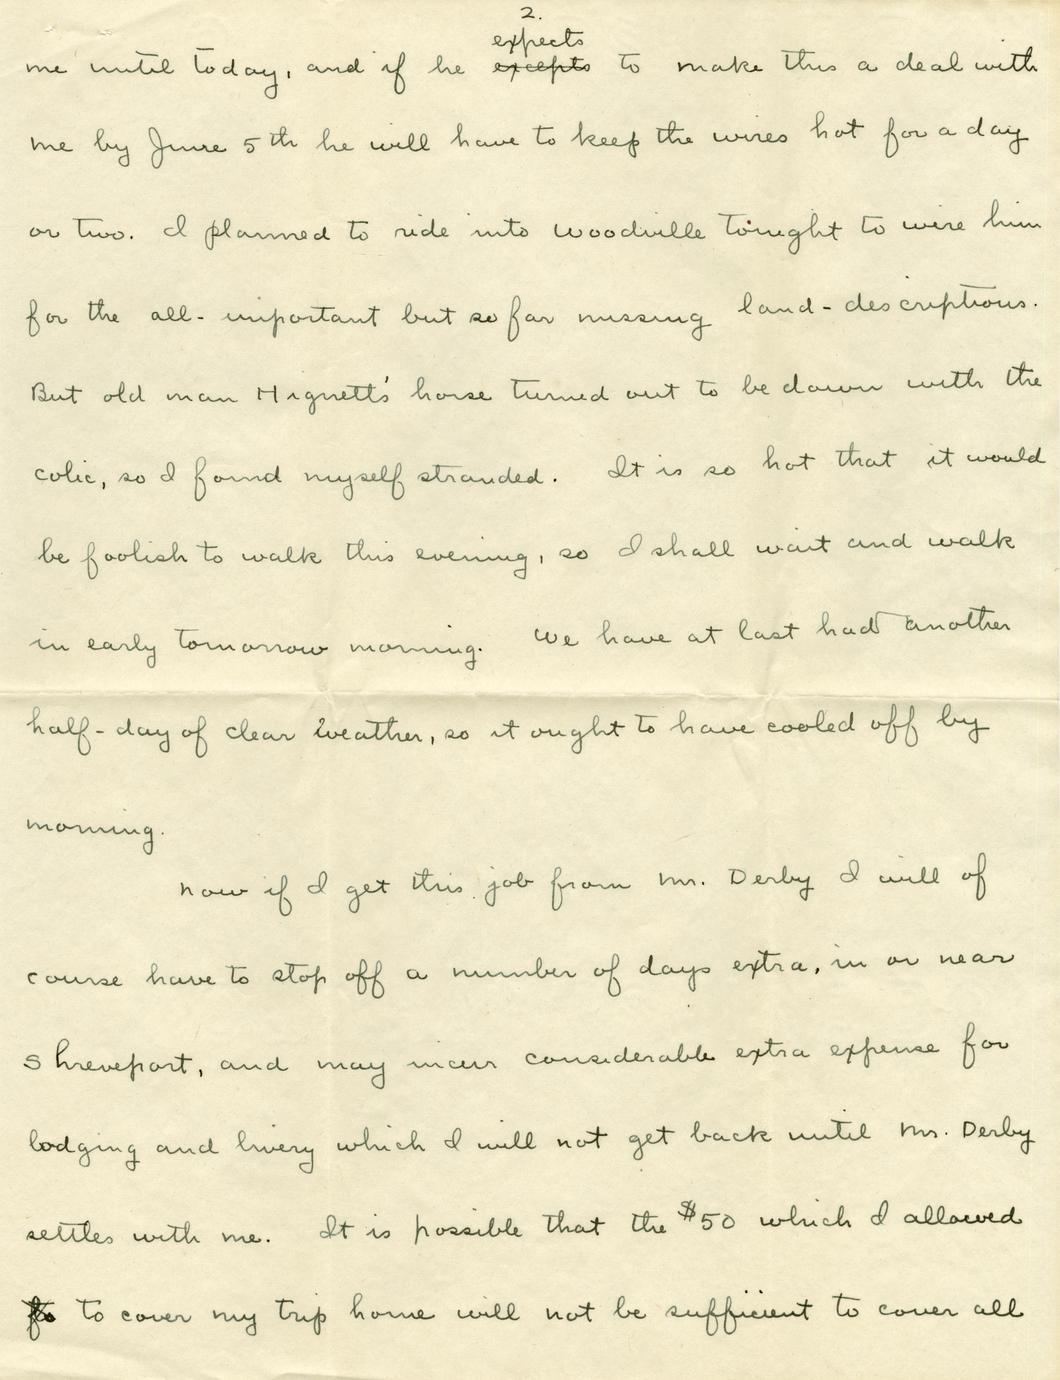 2.
expects
me until today, and if he excepts to make this a deal with
me by June 5th he will have to keep the wires hot for a day
or two. I planned to ride into Woodville tonight to wire him
for the all-important but so far missing land-descriptions.
But old man Hignett's horse turned out to be down with the
colic, so I found myself stranded. It is so hot that it would
be foolish to walk this evening, so I shall wait and walk
in early tomorrow morning. We have at last had another
half-day of clear weather, so it ought to have cooled off by
morning.
Now if I get this job from Mr. Derby I will of
course have to stop off a number of days extra, in or near
Shreveport, and may incur considerable extra expense for
lodging and livery which I will not get back until Mr. Derby
settles with me. It is possible that the $50 which I allowed
to cover my trip home will not be sufficient to cover all